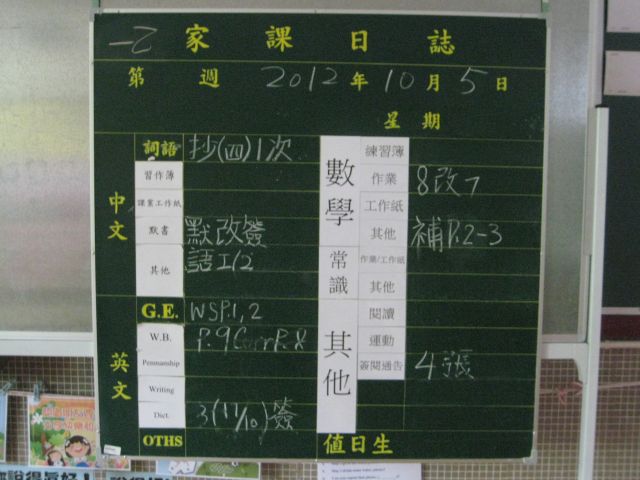 一乙 家課日誌
第 週 2012年10月5日
星期
中文
詞語 抄(四)1次
習作簿
課業工作紙
默書 默改簽
其他 語工1/2
英文
G.E. WSP.1,2
W.B. P.9 Corr P.8
Penmanship
Writing
Dict. 3(11/10)簽
OTHS
數學
練習簿
作業 8改7
工作紙
其他 補P.2-3
常識
作業/工作紙
其他
其他
閱讀
運動
簽閱通告 4張
值日生